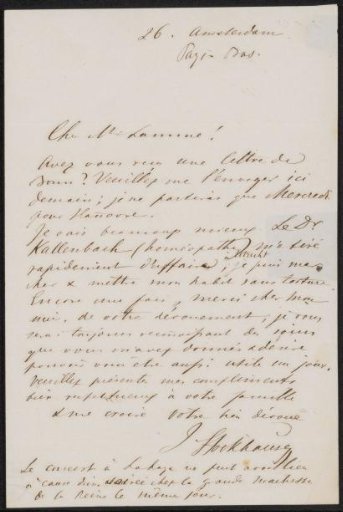 26. Amsterdam
Pays-Bas.
Cher Mr. Lamme!
Avez vous reçu une lettre de
Bonn? Veuillez me l'envoyer ici
demain; je ne partirai que Mercredi
pour Hanovre.
Je vais beaucoup mieux. Le Dr
Kallenbach (homéopathe) m'a tiré
rapidement d'affaire; je puis mar
cher & mettre mon habit sans torture.
Encore une fois, merci cher Mon
sieur, de votre dévouement; je vous
serai toujours reconnaissant des soins
que vous m'avez donnés & désire
pouvoir vous être aussi utile un jour.
Veuillez présenter mes compliments
bien respectueux à votre famille
& me croire Votre très dévoué
J. Stockhausen
Le concert à La Haye ne put avoir lieu
à cause d'une soirée chez la grande maîtresse
de la Reine le même jour.